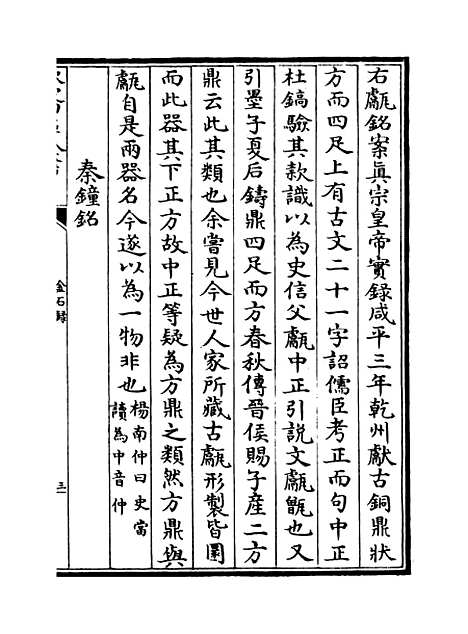 右甗銘案真宗皇帝實錄咸平三年乾州獻古銅鼎狀
方而四足上有古文二十一字詔儒臣考正而句中正
杜鎬驗其款識以為史信父甗中正引說文甗甑也又
引墨子夏后鑄鼎四足而方春秋傳晉侯賜子產二方
鼎云此其類也余嘗見今世人家所藏古甗形製皆圓
而此器其下正方故中正等疑為方鼎之類然方鼎與
甗自是兩器名今遂以為一物非也楊南仲曰史當
讀為中音仲
秦鐘銘
金石錄